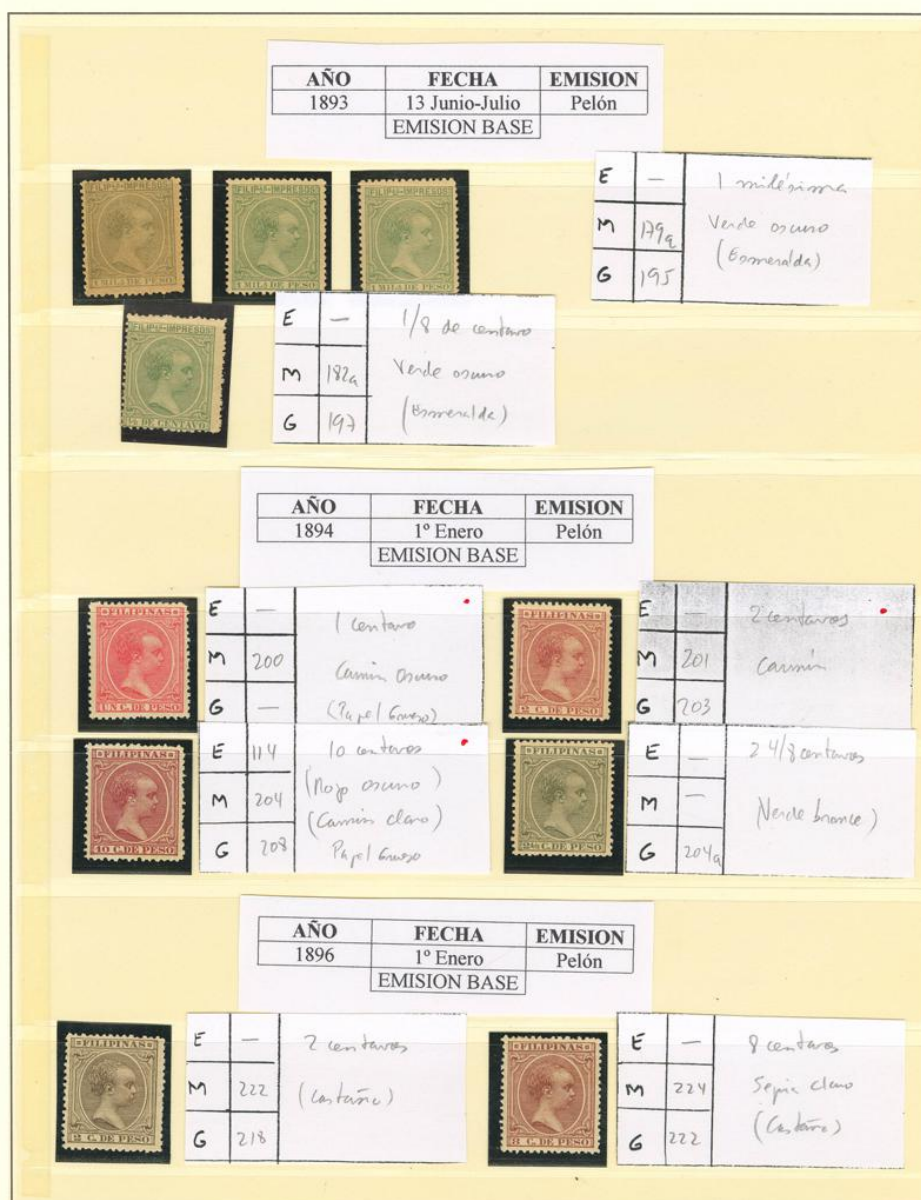 AÑO FECHA EMISION
1893 13 Junio-Julio Pelón
EMISION BASE
FILIPas-IMPRESOS
1 MILA DE PESO
FILIPas-IMPRESOS
1 MILA DE PESO
FILIPas-IMPRESOS
1 MILA DE PESO
E — 1 milésima
M 179a Verde oscuro
G 195 (Esmeralda)
FILIPas-IMPRESOS
⅛ DE CENTAVO
E — 1/8 de centavo
M 182a Verde oscuro
G 197 (Esmeralda)
AÑO FECHA EMISION
1894 1º Enero Pelón
EMISION BASE
FILIPINAS
UN C. DE PESO
E — 1 centavo
M 200 Carmín oscuro
G — (Papel Grueso)
FILIPINAS
2 C. DE PESO
E — 2 centavos
M 201 Carmín
G 203
FILIPINAS
10 C. DE PESO
E 114 10 centavos
M 204 (Rojo oscuro)
(Carmín claro)
G 208 Papel Grueso
FILIPINAS
C. DE PESO
E — 2 4/8 centavos
M — (Verde bronce)
G 204a
AÑO FECHA EMISION
1896 1º Enero Pelón
EMISION BASE
FILIPINAS
2 C. DE PESO
E — 2 centavos
M 222 (Castaño)
G 218
FILIPINAS
8 C. DE PESO
E — 8 centavos
M 224 Sepia claro
G 222 (Castaño)